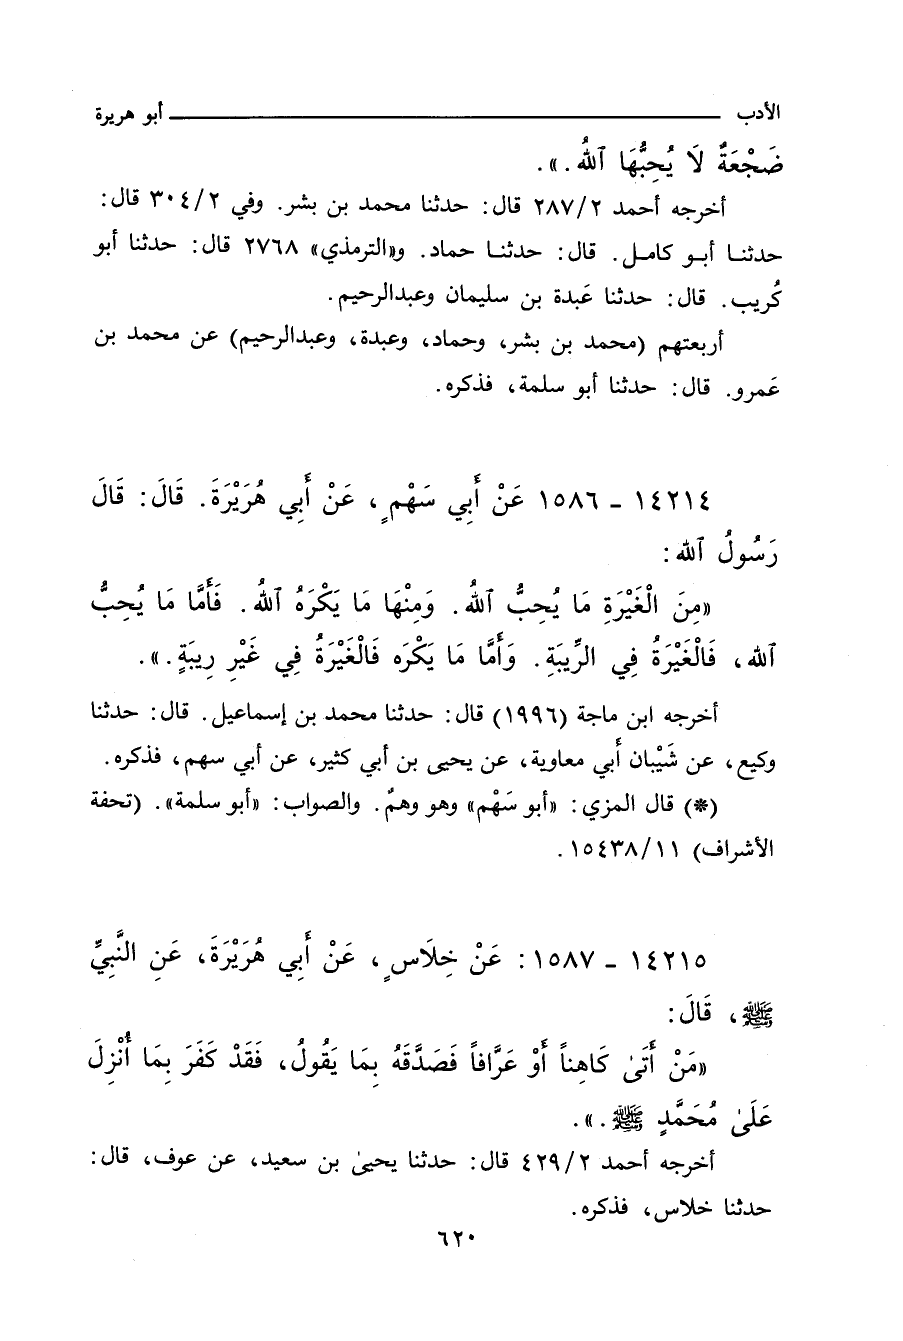 الأدب ـــــــــــــــــــــ أبو هريرة
ضَجْعَةٌ لَا يُحِبُّهَا ٱللهُ.».
أخرجه أحمد ٢٨٧/٢ قال: حدثنا محمد بن بشر. وفي ٣٠٤/٢ قال:
حدثنا أبو كامل. قال: حدثنا حماد. و«الترمذي» ٢٧٦٨ قال: حدثنا أبو
كُريب. قال: حدثنا عَبدة بن سليمان وعبدالرحيم.
أربعتهم (محمد بن بشر، وحماد، وعبدة، وعبدالرحيم) عن محمد بن
عَمرو. قال: حدثنا أبو سلمة، فذكره.
١٤٢١٤ - ١٥٨٦ عَنْ أَبِي سَهْمٍ، عَنْ أَبِي هُرَيْرَةَ. قَالَ: قَالَ
رَسُولُ ٱلله:
«مِنَ الْغَيْرَةِ مَا يُحِبُّ ٱللهُ. وَمِنْهَا مَا يَكْرَهُ ٱللهُ. فَأَمَّا مَا يُحِبُّ
ٱلله، فَالْغَيْرَةُ فِي الرِّيبَةِ. وَأَمَّا مَا يَكْرَه فَالْغَيْرَةُ فِي غَيْرِ رِيبَةٍ.».
أخرجه ابن ماجة (١٩٩٦) قال: حدثنا محمد بن إسماعيل. قال: حدثنا
وكيع، عن شَيْبان أَبي معاوية، عن يحيى بن أبي كثير، عن أبي سهم، فذكره.
(*) قال المزي: «أبو سَهْم» وهو وهمٌ. والصواب: «أبو سلمة». (تحفة
الأشراف) ١٥٤٣٨/١١.
١٤٢١٥ - ١٥٨٧: عَنْ خِلَاسٍ، عَنْ أَبِي هُرَيْرَةَ، عَنِ النَّبِيِّ
ﷺ، قَالَ:
«مَنْ أَتَىٰ كَاهِناً أَوْ عَرَّافاً فَصَدَّقَهُ بِمَا يَقُولُ، فَقَدْ كَفَرَ بِمَا أُنْزِلَ
عَلَىٰ مُحَمَّدٍ ﷺ.».
أخرجه أحمد ٤٢٩/٢ قال: حدثنا يحيىٰ بن سعيد، عن عوف، قال:
حدثنا خلاس، فذكره.
٦٢٠